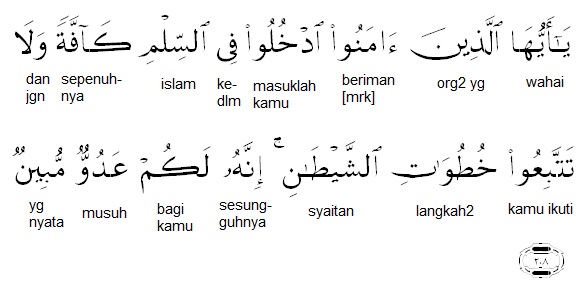 يَـٰٓأَيُّهَا ٱلَّذِينَ ءَامَنُوا۟ ٱدْخُلُوا۟ فِى ٱلسِّلْمِ كَآفَّةً وَلَا
wahai org2 yg beriman [mrk] masuklah kamu ke-dlm islam sepenuh-nya dan jgn
تَتَّبِعُوا۟ خُطُوَٰتِ ٱلشَّيْطَـٰنِ ۚ إِنَّهُۥ لَكُمْ عَدُوٌّ مُّبِينٌ
kamu ikuti langkah2 syaitan sesung-guhnya bagi kamu musuh yg nyata
٢٠٨